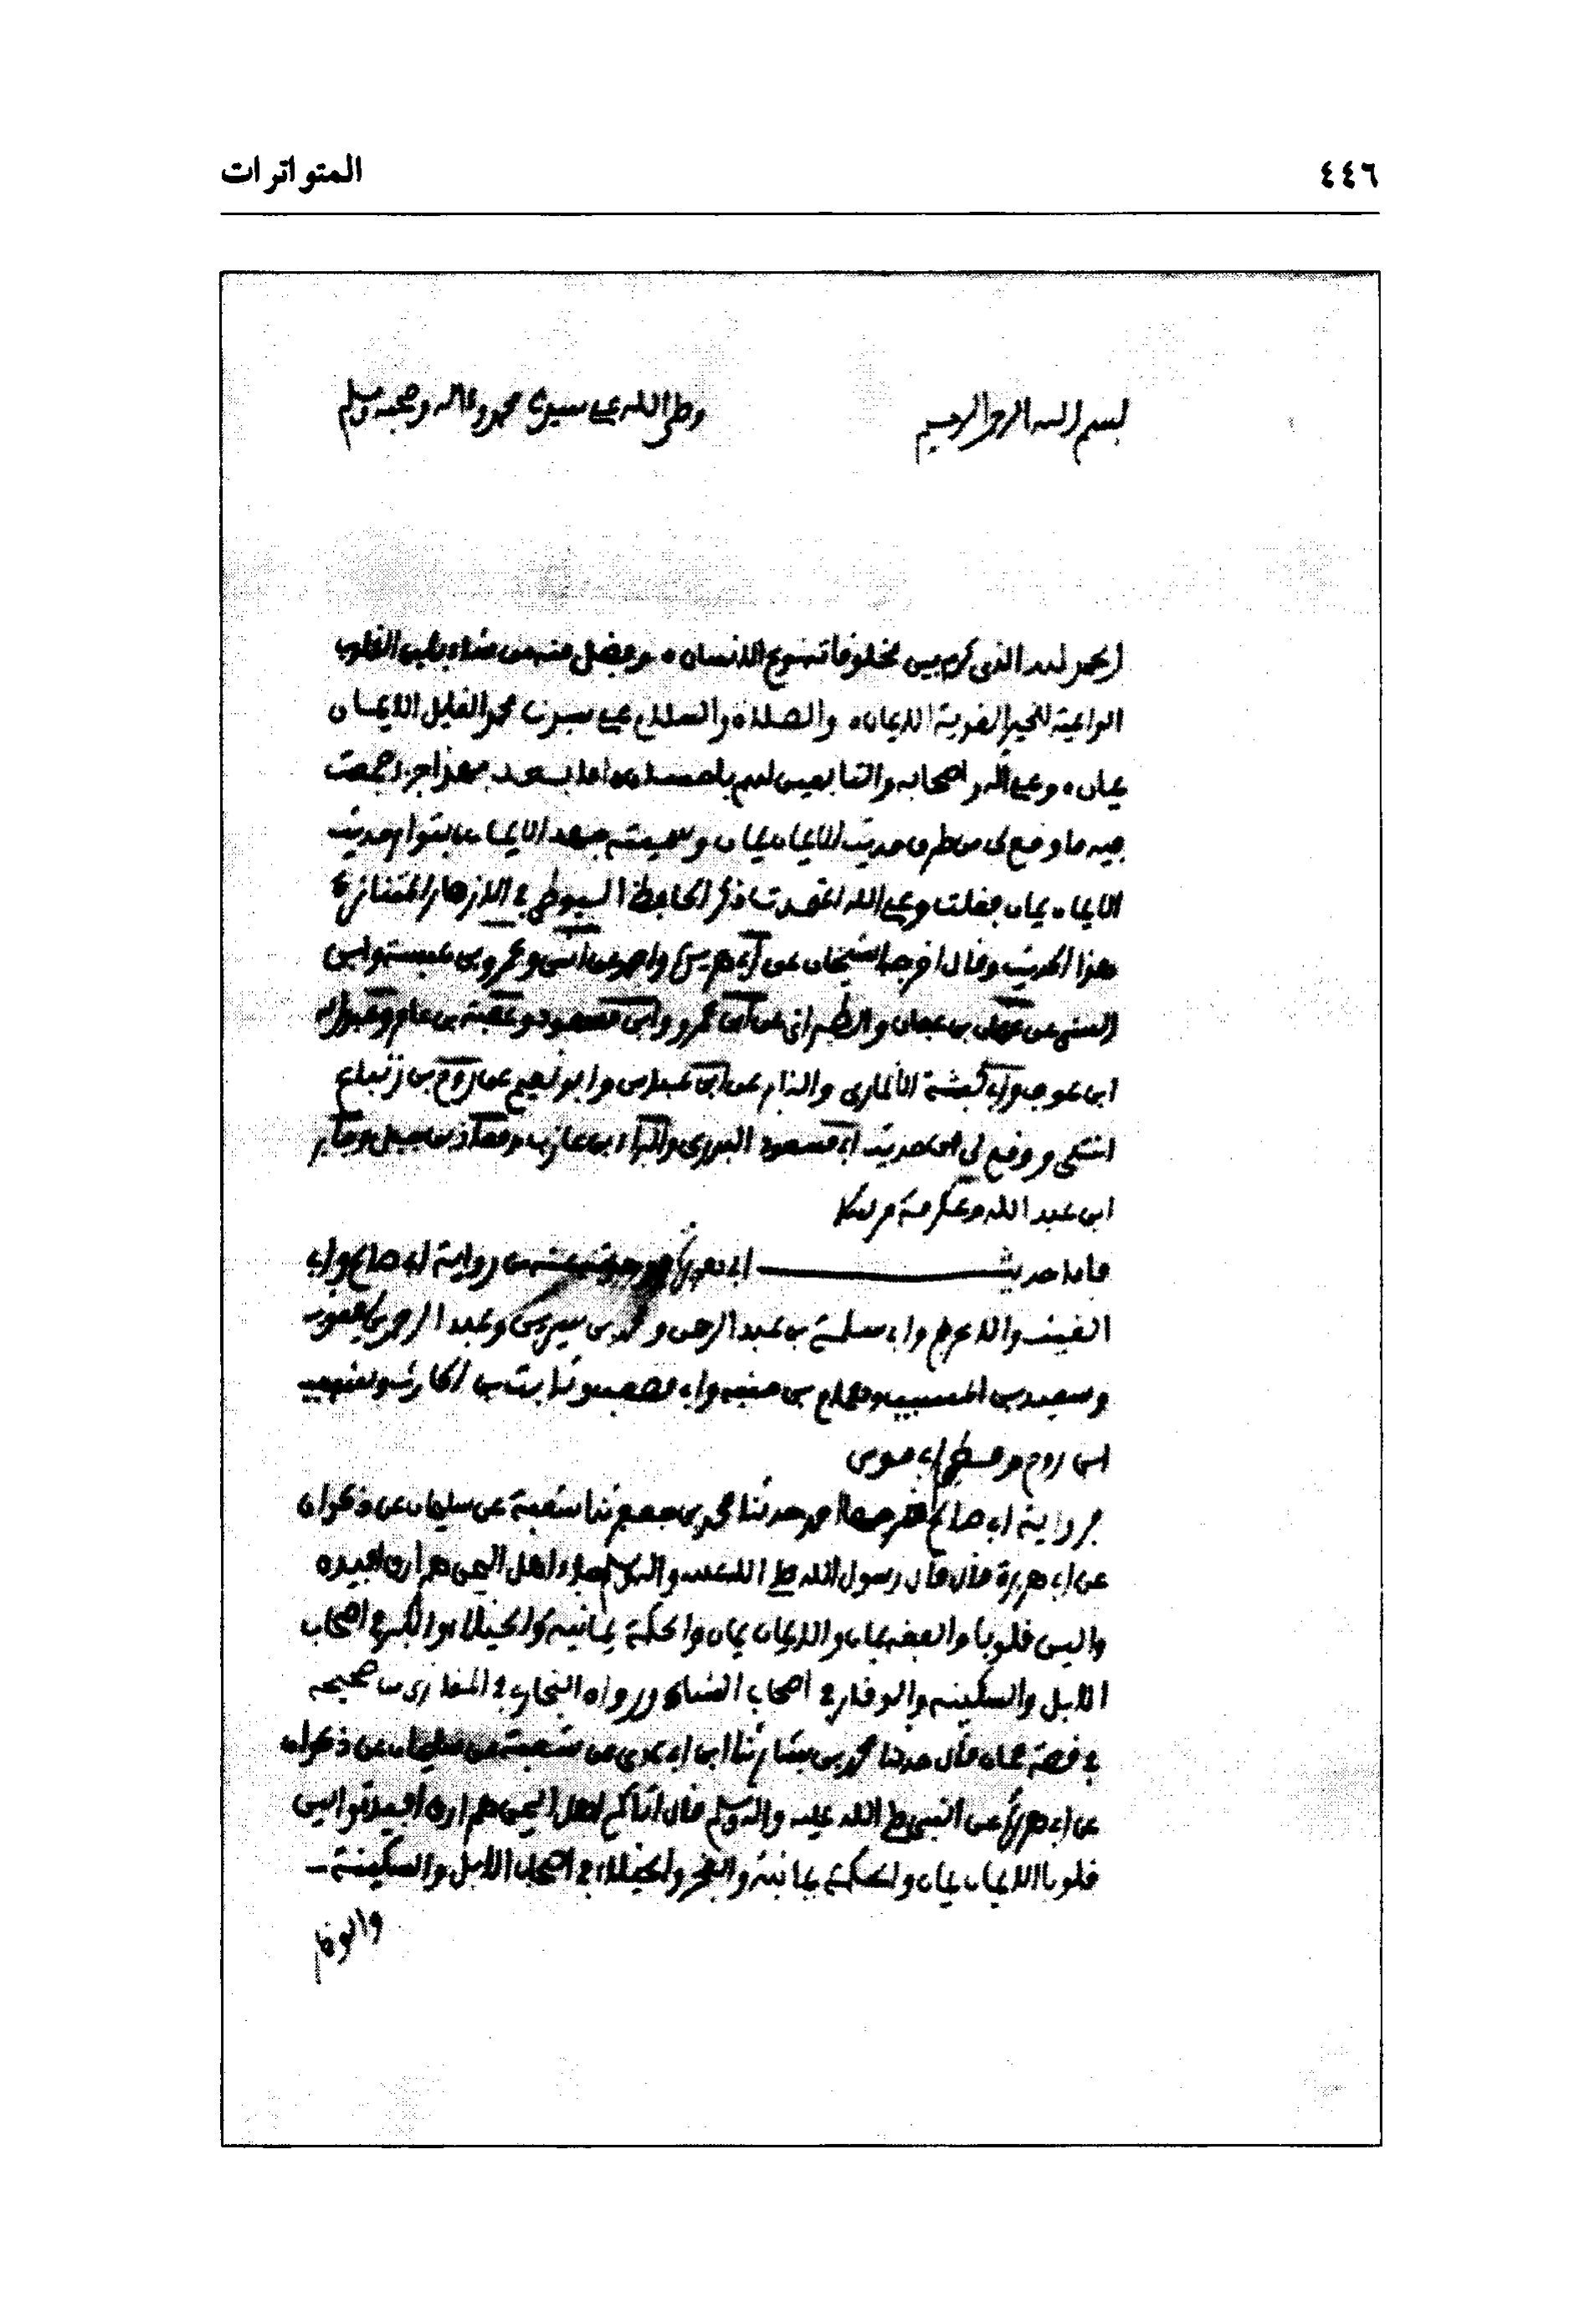 ٤٤٦
المتواترات
بسم الله الرحمن الرحيم وصلى الله على سيدنا محمد وءاله وصحبه وسلم
الحمد لله الذي كرم بين مخلوقاته نوع الانسان وفضل منهم من شاء القلوب
الواعية للخير القوية الايمان والصلاة والسلام على سيدنا محمد القايل الايمان
يمان وعلى اله واصحابه والتابعين لهم باحسان اما بعد فهذا جزء جمعت
فيه ما وقع لي من طرق حديث الايمان يمان وسميته الايمان بتواتر حديث
الايمان يمان فقلت وعلى الله اعتمدت ذكر الحافظ السيوطي في الازهار المتناثرة
هذا الحديث وقال اخرجه الشيخان عن ابي هريرة واحمد عن انس وعمرو بن عبسة وابن
السني عن عثمان بن عفان والطبراني عن ابن عمرو وابي مسعود وعقبة بن عامر وعبد الله
ابن عوف وابي كبشة الأنماري والبزار عن ابن عباس وابو نعيم عن روح بن زنباع
انتهى ووقع لي من حديث ابي مسعود البدري والبراء بن عازب ومعاذ بن جبل وجابر
ابن عبد الله وعكرمة مرسلا
فاما حديث ابي هريرة من رواية ابي صالح وابي
الغيث والاعرج وابي سلمة بن عبد الرحمن ومحمد بن سيرين وعبد الرحمن بن يعقوب
وسعيد بن المسيب وهمام بن منبه وابي مصعب وثابت بن الحارث
ابي روح
فرواية ابي صالح اخرجها احمد حدثنا محمد بن جعفر ثنا شعبة عن سليمان عن ذكوان
عن ابي هريرة قال قال رسول الله صلى الله عليه واله وسلم اهل اليمن هم ارق افيدة
والين قلوبا والفقه يمان والايمان يمان والحكمة يمانية والخيلاء والكبر في اصحاب
الابل والسكينة والوقار في اصحاب الشاء ورواه البخاري في المغازي من صحيحه
في قصة عمان قال حدثنا محمد بن بشار ثنا ابن ابي عدي عن شعبة عن سليمان عن ذكوان
عن ابي هريرة عن النبي صلى الله عليه واله وسلم قال اتاكم اهل اليمن هم ارق افيدة والين
قلوبا الايمان يمان والحكمة يمانية والفخر والخيلاء في اصحاب الابل والسكينة
والوقار